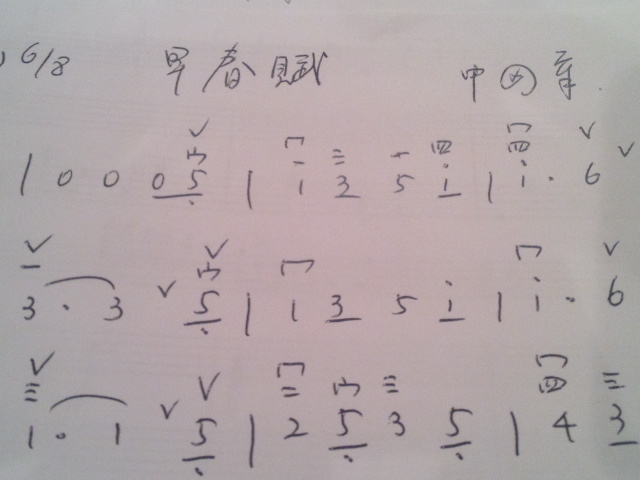 6/8 早春賦 中田章
| 0 0 0 5̣ | 1 3 5 i | i · 6
3 · 3 5̣ | 1 3 5 i | i · 6
1 · 1 5̣ | 2 5̣ 3 5̣ | 4 3